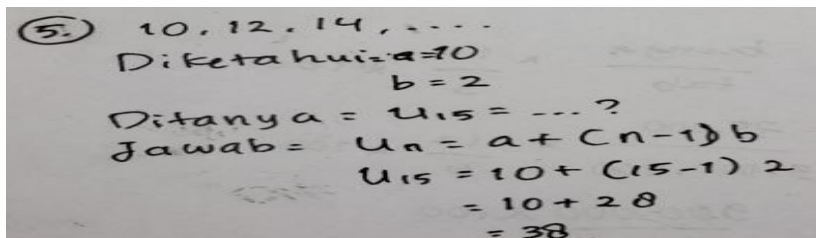 5. 10, 12, 14, .....
Diketahui = a = 10
b = 2
Ditanya = U15 = --- ?
Jawab = Un = a + (n-1) b
U15 = 10 + (15-1) 2
= 10 + 28
= 38